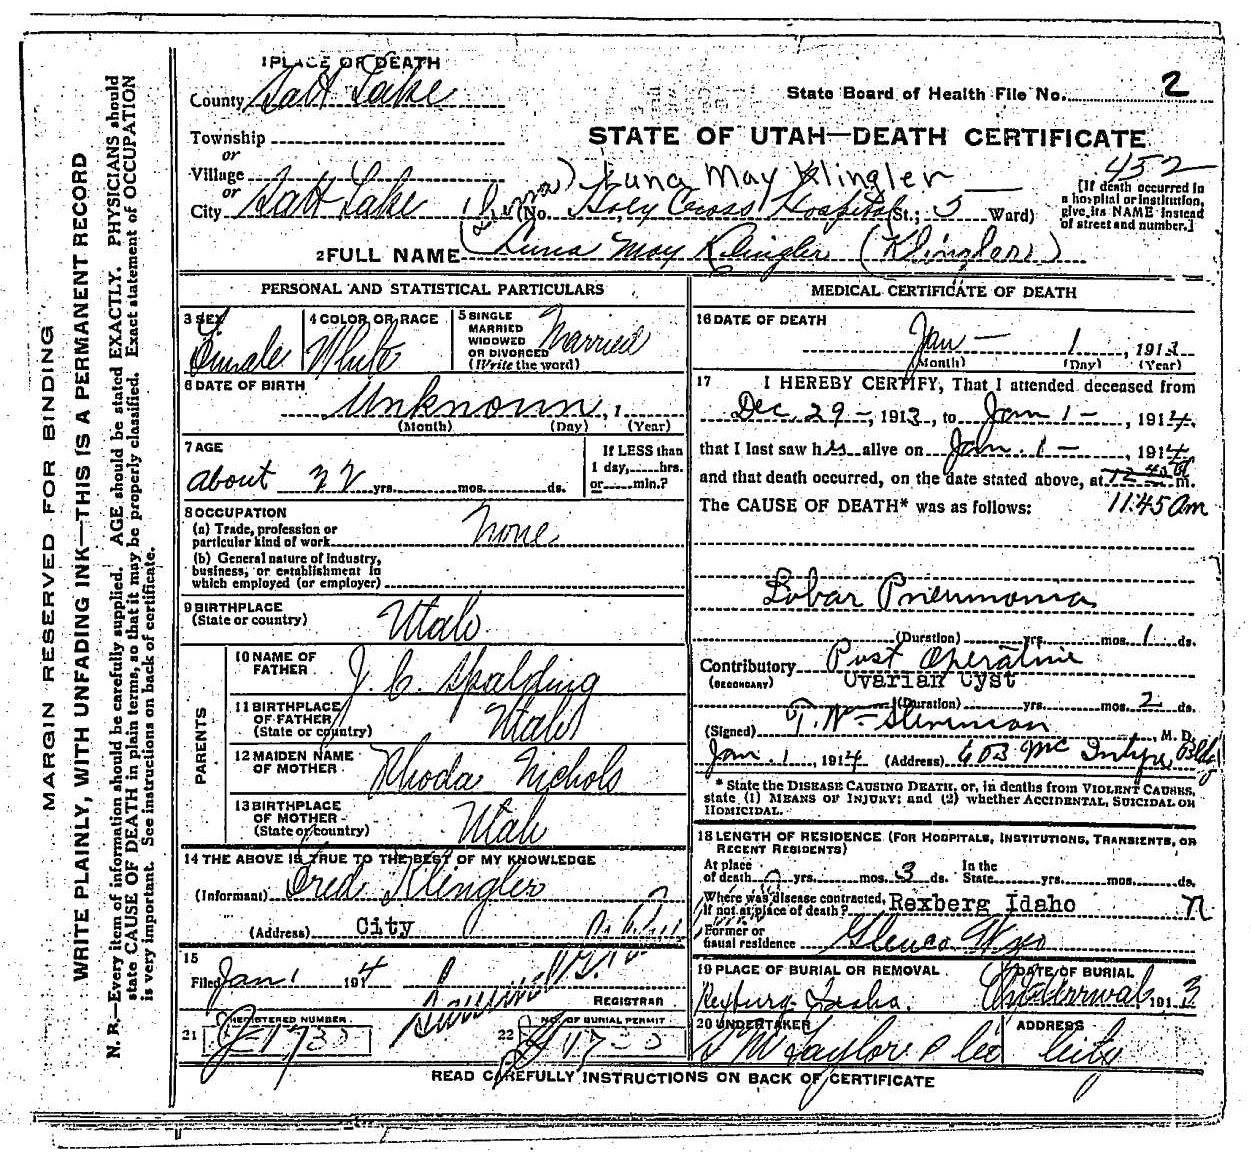 1 PLACE OF DEATH
County Salt Lake
State Board of Health File No. 2
Township
or
Village
or
City Salt Lake
STATE OF UTAH—DEATH CERTIFICATE
452
Luna May Klingler
(No. Holy Cross Hospital St.; 5 Ward)
[If death occurred in
a hospital or institution,
give its NAME instead
of street and number.]
2 FULL NAME Luna May Klingler (Klinglers)
PERSONAL AND STATISTICAL PARTICULARS
3 SEX
Female
4 COLOR OR RACE
White
5 SINGLE
MARRIED
WIDOWED
OR DIVORCED
(Write the word)
Married
6 DATE OF BIRTH
Unknown, 1
(Month) (Day) (Year)
7 AGE
about 22 yrs. mos. ds.
If LESS than
1 day, hrs.
or min.?
8 OCCUPATION
(a) Trade, profession or
particular kind of work None
(b) General nature of industry,
business, or establishment in
which employed (or employer)
9 BIRTHPLACE
(State or country) Utah
PARENTS
10 NAME OF
FATHER J. C. Spalding
11 BIRTHPLACE
OF FATHER
(State or country) Utah
12 MAIDEN NAME
OF MOTHER Rhoda Nichols
13 BIRTHPLACE
OF MOTHER
(State or country) Utah
14 THE ABOVE IS TRUE TO THE BEST OF MY KNOWLEDGE
(Informant) Fred Klingler
(Address) City
15
Filed Jan 1 1914
REGISTRAR
21 REGISTERED NUMBER
22 NO. OF BURIAL PERMIT
MEDICAL CERTIFICATE OF DEATH
16 DATE OF DEATH
Jan — 1, 1913
(Month) (Day) (Year)
17 I HEREBY CERTIFY, That I attended deceased from
Dec. 29 –, 1913, to Jan 1 –, 1914,
that I last saw h alive on Jan. 1 –, 1914
and that death occurred, on the date stated above, at m.
The CAUSE OF DEATH* was as follows: 11:45 am
Lobar Pneumonia
(Duration) yrs. mos. 1 ds.
Contributory Post Operative
(SECONDARY) Ovarian Cyst
(Duration) yrs. mos. 2 ds.
(Signed) M. D.
Jan. 1, 1914 (Address) 603 McIntyre Bldg
* State the DISEASE CAUSING DEATH, or, in deaths from VIOLENT CAUSES,
state (1) MEANS OF INJURY; and (2) whether ACCIDENTAL, SUICIDAL OR
HOMICIDAL.
18 LENGTH OF RESIDENCE (FOR HOSPITALS, INSTITUTIONS, TRANSIENTS, OR
RECENT RESIDENTS)
At place
of death yrs. mos. 3 ds.
In the
State yrs. mos. ds.
Where was disease contracted,
If not at place of death? Rexberg Idaho
Former or
usual residence Glenco Wyo
19 PLACE OF BURIAL OR REMOVAL
Rexburg Idaho.
DATE OF BURIAL
191 3
20 UNDERTAKER
S M Taylor & Co
ADDRESS
City
READ CAREFULLY INSTRUCTIONS ON BACK OF CERTIFICATE
MARGIN RESERVED FOR BINDING
WRITE PLAINLY, WITH UNFADING INK—THIS IS A PERMANENT RECORD
N. B.—Every item of information should be carefully supplied. AGE should be stated EXACTLY. PHYSICIANS should
state CAUSE OF DEATH in plain terms, so that it may be properly classified. Exact statement of OCCUPATION
is very important. See instructions on back of certificate.